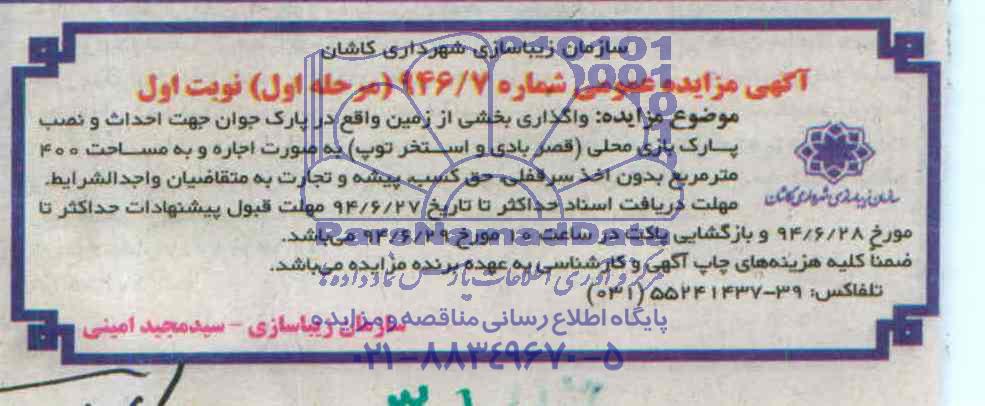 سازمان زیباسازی شهرداری کاشان
آگهی مزایده عمومی شماره ۹۴۶/۷ (مرحله اول) نوبت اول
موضوع مزایده: واگذاری بخشی از زمین واقع در پارک جوان جهت احداث و نصب
پارک بازی محلی (قصر بادی و استخر توپ) به صورت اجاره و به مساحت ۴۰۰
مترمربع بدون اخذ سرقفلی، حق کسب، پیشه و تجارت به متقاضیان واجدالشرایط.
مهلت دریافت اسناد حداکثر تا تاریخ ۹۴/۶/۲۷ مهلت قبول پیشنهادات حداکثر تا
مورخ ۹۴/۶/۲۸ و بازگشایی پاکت در ساعت ۱۰ مورخ ۹۴/۶/۲۹ می‌باشد.
ضمناً کلیه هزینه‌های چاپ آگهی و کارشناسی به عهده برنده مزایده می‌باشد.
تلفاکس: ۳۹-۵۵۲۴۱۴۳۷ (۰۳۱)
سازمان زیباسازی - سیدمجید امینی
سازمان زیباسازی شهرداری کاشان
پایگاه اطلاع رسانی مناقصه و مزایده
۰۲۱-۸۸۳۴۹۶۷۰-۵